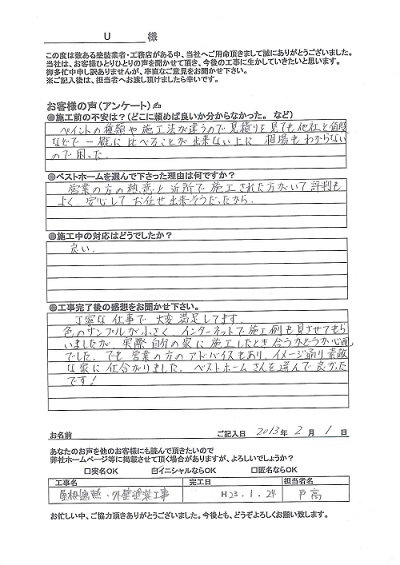 U 様
この度は数ある塗装業者・工務店がある中、当社へご用命頂きまして誠にありがとうございました。
当社は、お客様ひとりひとりの声を聞かせて頂き、今後の工事に生かしていきたいと思います。
御多忙中申し訳ありませんが、率直なご意見をお聞かせ下さい。
※ご記入後は、直接担当者へお渡し頂けましたら幸いです。
お客様の声(アンケート)✍
●施工前の不安は?(どこに頼めば良いか分からなかった。 など)
ペイントの種類や施工法が違うので見積りを見ても他社と価格
などで一概に比べることが出来ない上に 相場もわからない
ので困った。
●ベストホームを選んで下さった理由は何ですか?
営業の方の熱意と近所で施工された方がいて評判も
よく、安心してお任せ出来そうだったから。
●施工中の対応はどうでしたか?
良い。
●工事完了後の感想をお聞かせ下さい。
丁寧な仕事で大変満足してます。
色のサンプルが小さく インターネットで施工例も見させてもら
いましたが、実際自分の家に施工したとき合うかどうか心配
でした。でも営業の方のアドバイスもあり、イメージ通り素敵
な家に仕上がりました。ベストホームさんを選んで良かった
です!
お名前 ご記入日 2013年 2月 1日
あなたのお声を他のお客様にも読んで頂きたいので
弊社ホームページ等に掲載させて頂く場合がありますが、よろしいでしょうか?
□実名OK ☑イニシャルならOK □匿名ならOK
工事名 完工日 担当者名
屋根・外壁塗装工事 H23.1.24 戸高
お忙しい中、ご協力頂きありがとうございました。今後とも、どうぞよろしくお願い致します。